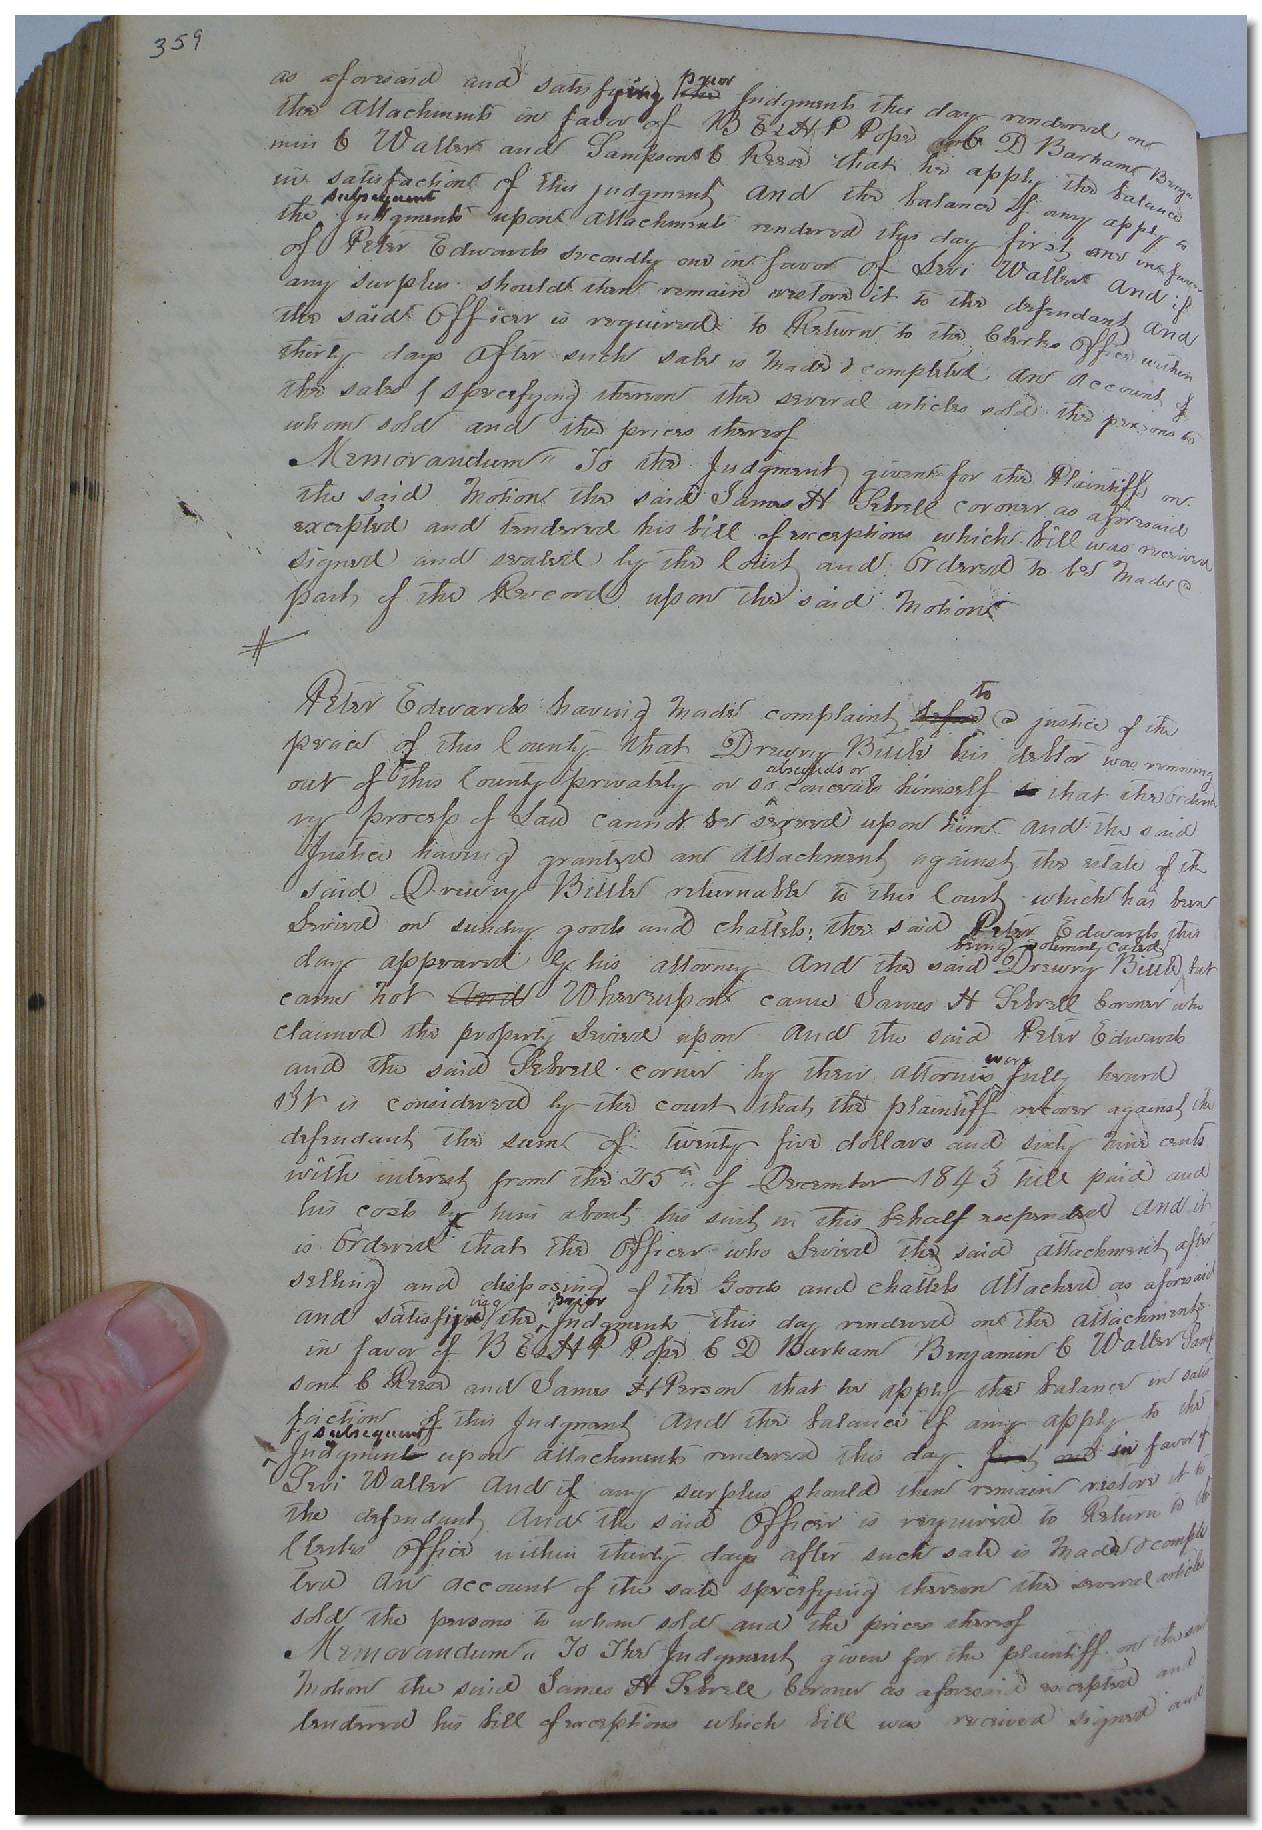 359
as aforesaid and satisfying the prior Judgments this day rendered on
the attachments in favor of B E & H P Pope C D Barham Benja
min C Waller and Sampson C Reese that he apply the balance
in satisfaction of this judgment and the balance if any apply to
the subsequent Judgments upon attachments rendered this day first one in favor
of Peter Edwards secondly one in favor of Levi Waller And if
any surplus should then remain restore it to the defendant and
the said Officer is required to Return to the Clerks Office within
thirty days after such sale is made & completed an account of
the sales (specifying thereon the several articles sold the persons to
whom sold and the prices thereof
Memorandum" To the Judgment given for the Plaintiff on
the said Motion the said James H Sebrell coroner as aforesaid
excepted and tendered his bill of exceptions which bill was received
signed and sealed by the Court and Ordered to be made a
part of the Record upon the said Motion
Peter Edwards having made complaint before to a justice of the
peace of this County that Drewry Bittle his debtor was running
out of this County privately or absconds or so conceals himself so that the ordina
ry process of Law cannot be served upon him and the said
Justice having granted an attachment against the estate of the
said Drewry Bittle returnable to this Court which has been
levied on sunday goods and chattels; the said Peter Edwards this
day appeared by his attorney And the said Drewry Bittle being solemnly called but
came not And Whereupon came James H Sebrell Coroner who
claimed the property levied upon And the said Peter Edwards
and the said Sebrell corner by their attornies were fully heard
It is considered by the court that the plaintiff recover against the
defendant the sum of twenty five dollars and sixty nine cents
with interest from the 25th of December 1843 till paid and
his costs by him about his suit in this behalf expended And it
is Ordered that the Officer who levied the said attachment after
selling and disposing of the Goods and chattels attached as aforesaid
and satisfying the prior Judgments this day rendered on the attachments
in favor of B E & H P Pope C D Barham Benjamin C Waller Samp
son C Reese and James H Person that he apply the balance in satis
faction of this Judgment And the balance if any apply to the
subsequent Judgment upon attachments rendered this day first one in favor of
Levi Waller And if any surplus should then remain restore it to
the defendant And the said Officer is required to Return to the
Clerks Office within thirty days after such sale is made & comple
ted an account of the sale specifying thereon the several articles
sold the persons to whom sold and the prices thereof
Memorandum" To The Judgment given for the plaintiff on the said
Motion the said James H Sebrell Coroner as aforesaid excepted and
tendered his bill of exceptions which bill was received signed and